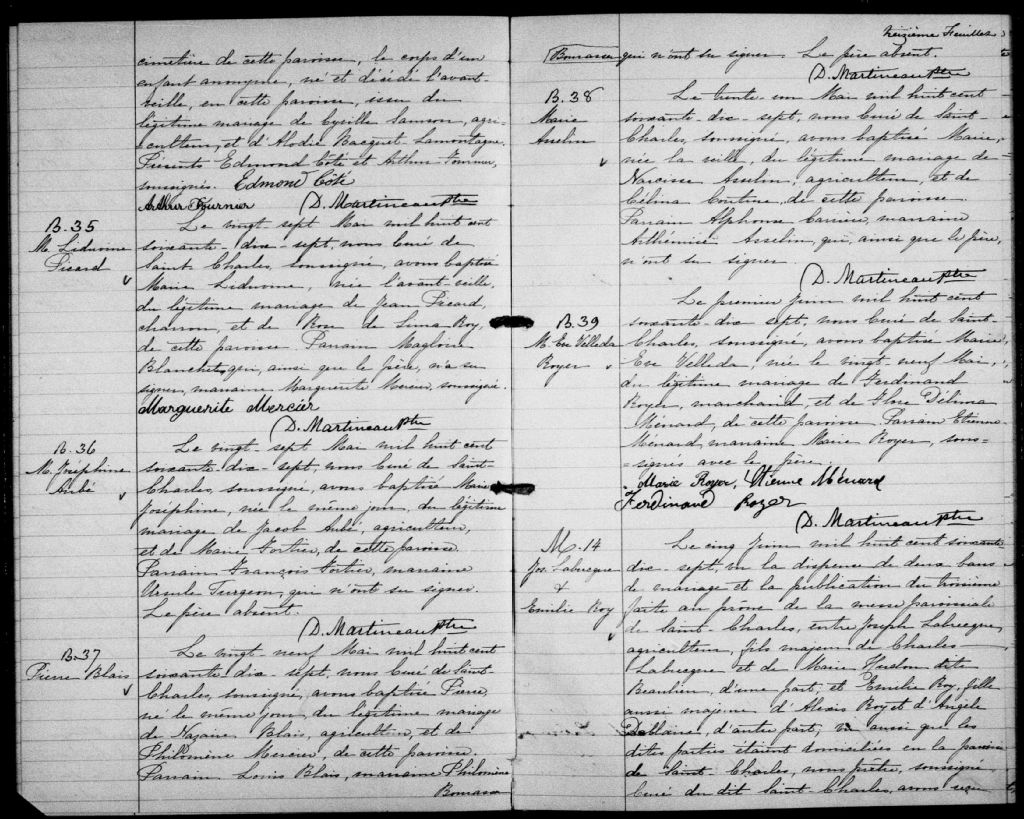 cimetière de cette paroisse, le corps d'un
enfant anonyme, né et décédé l'avant-
veille, en cette paroisse, issu du
légitime mariage de Cyrille Samson, agri-
culteur, et d'Alodie Bacquet Lamontagne.
Présents Edmond Côté et Arthur Fournier,
soussignés. Edmond Côté
Arthur Fournier D. Martineau Ptre
B. 35
M. Liduvine
Picard
Le vingt-sept Mai mil huit cent
soixante-dix-sept, nous Curé de
Saint Charles, soussigné, avons baptisé
Marie Liduvine, née l'avant-veille,
du légitime mariage de Jean Picard,
charron, et de Rose de Lima Roy,
de cette paroisse. Parrain Magloire
Blanchet, qui, ainsi que le père, n'a su
signer, marraine Marguerite Mercier, soussignée.
Marguerite Mercier
D. Martineau Ptre
B. 36
M. Joséphine
Aubé
Le vingt-sept Mai mil huit cent
soixante-dix-sept, nous Curé de Saint-
Charles, soussigné, avons baptisé Marie
Joséphine, née le même jour, du légitime
mariage de Jacob Aubé, agriculteur,
et de Marie Fortier, de cette paroisse.
Parrain François Fortier, marraine
Ursule Turgeon, qui n'ont su signer.
Le père absent.
D. Martineau Ptre
B. 37
Pierre Blais
Le vingt-neuf Mai mil huit cent
soixante-dix-sept, nous Curé de Saint-
Charles, soussigné, avons baptisé Pierre,
né le même jour, du légitime mariage
de Nazaire Blais, agriculteur, et de
Philomène Mercier, de cette paroisse.
Parrain Louis Blais, marraine Philomène
Bourassa
treizième Feuillet
Bourassa qui n'ont su signer. Le père absent.
D. Martineau Ptre
B. 38
Marie
Asselin
Le trente-un Mai mil huit cent
soixante-dix-sept, nous Curé de Saint
Charles, soussigné, avons baptisé Marie,
née la veille, du légitime mariage de
Narcisse Asselin, agriculteur, et de
Célina Couture, de cette paroisse.
Parrain Alphonse Carrier, marraine
Arthémise Asselin, qui, ainsi que le père,
n'ont su signer.
D. Martineau Ptre
B. 39
M. Eve Velleda
Royer
Le premier Juin mil huit cent
soixante-dix-sept, nous Curé de Saint-
Charles, soussigné, avons baptisé Marie
Eve Velleda, née le vingt-neuf Mai,
du légitime mariage de Ferdinand
Royer, marchand, et de Flore Délima
Ménard, de cette paroisse. Parrain Etienne
Ménard, marraine Marie Royer, sous-
-signés avec le père.
Marie Royer, Etienne Ménard
Ferdinand Royer
D. Martineau Ptre
M. 14
Jos. Labrecque
&
Emilie Roy
Le cinq Juin mil huit cent soixante
dix-sept, vu la dispense de deux bans
de mariage et la publication du troisième
faite au prône de la messe paroissiale
de Saint-Charles, entre Joseph Labrecque,
agriculteur, fils majeur de Charles
Labrecque et de Marie Huslon dite
Beaulieu, d'une part; et Emilie Roy, fille
aussi majeure d'Alexis Roy et d'Angèle
Dallaire, d'autre part; vu aussi que les
dites parties étaient domiciliées en la paroisse
de Saint-Charles, nous prêtre, soussigné,
Curé du dit Saint-Charles, avons reçu